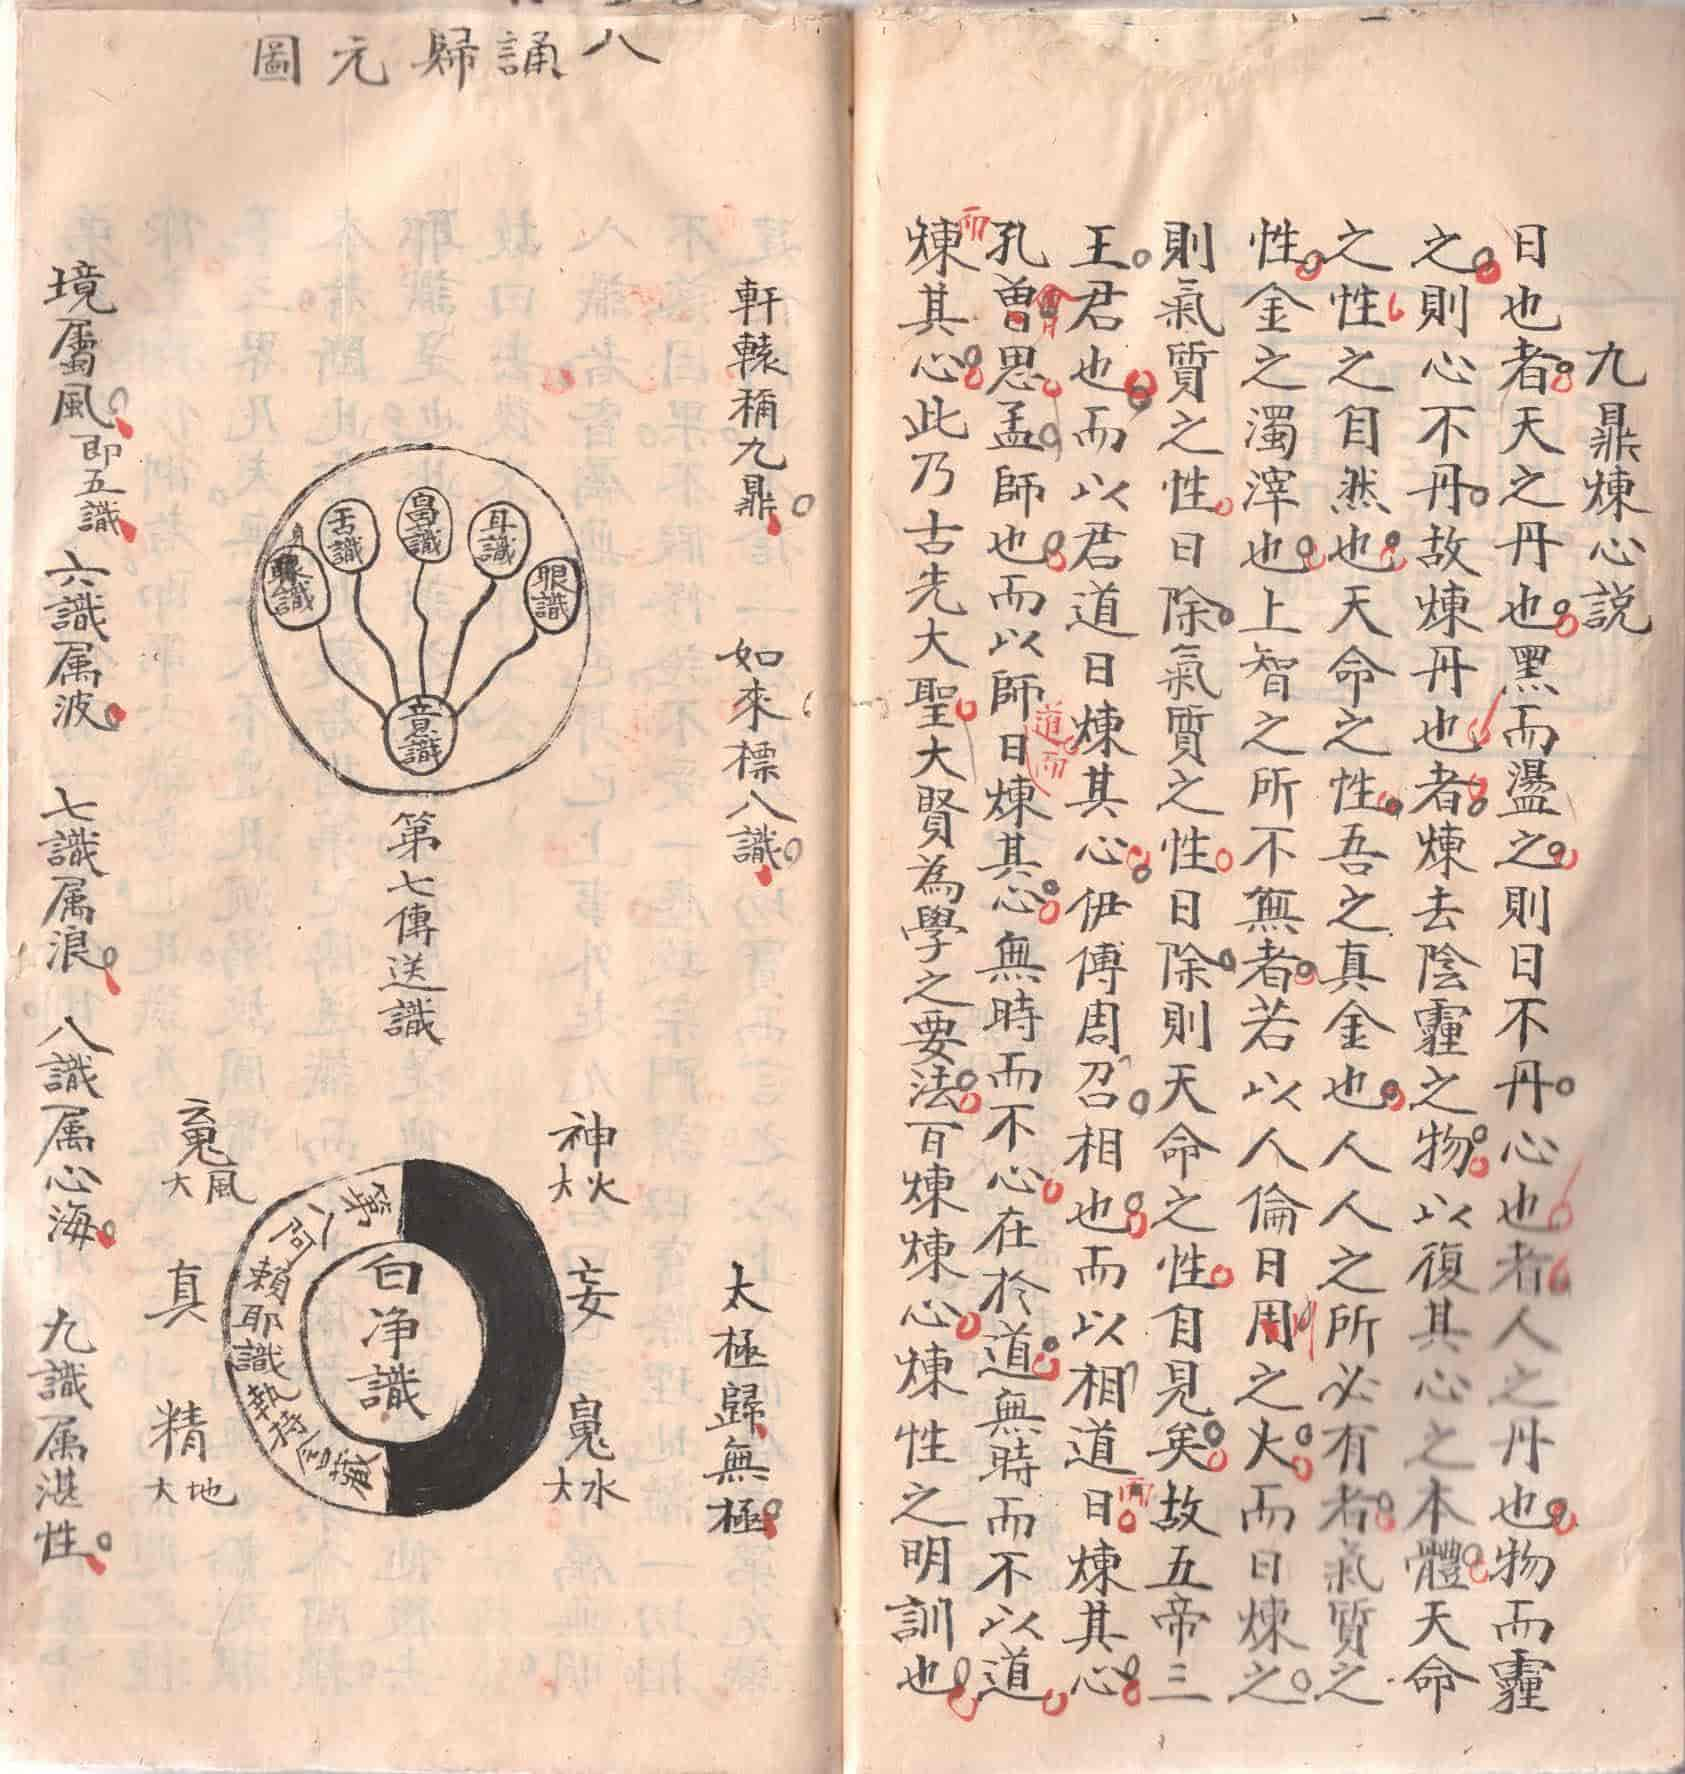 九鼎煉心説
日也者天之丹也黑而盪之則日不丹心也者人之丹也物而霾
之則心不丹故煉丹也者煉去陰霾之物以復其心之本體天命
之性之自然也天命之性吾之真金也人人之所必有者氣質之
性金之濁滓也上智之所不無者若以人倫日用之火而日煉之
則氣質之性日除氣質之性日除則天命之性自見矣故五帝三
王君也而以君道日煉其心伊傅周召相也而以相道日煉其心
孔曾思孟師也而以師道而日煉其心無時而不心在於道無時而不以道
而煉其心此乃古先大聖大賢為學之要法百煉煉心煉性之明訓也
八誦歸元圖
軒轅稱九鼎 如來標八識 太極歸無極
眼識
耳識
鼻識
舌識
身識
意識
第七傳送識
神
大火
妄
鬼
大水
第八阿賴耶識執持含藏
白净識
魂
大風
真
精
大地
境屬風即五識 六識属波 七識属浪 八識属心海 九識属湛性